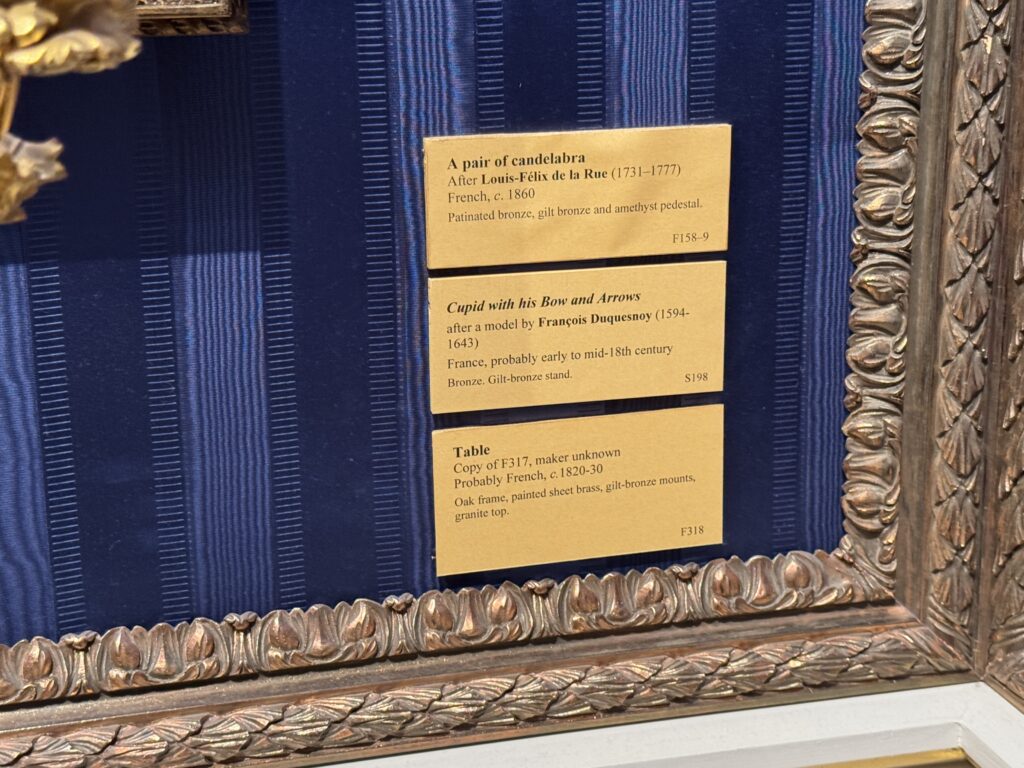 A pair of candelabra
After Louis-Félix de la Rue (1731–1777)
French, c. 1860
Patinated bronze, gilt bronze and amethyst pedestal.
F158–9
Cupid with his Bow and Arrows
after a model by François Duquesnoy (1594-
1643)
France, probably early to mid-18th century
Bronze. Gilt-bronze stand.
S198
Table
Copy of F317, maker unknown
Probably French, c.1820-30
Oak frame, painted sheet brass, gilt-bronze mounts,
granite top.
F318